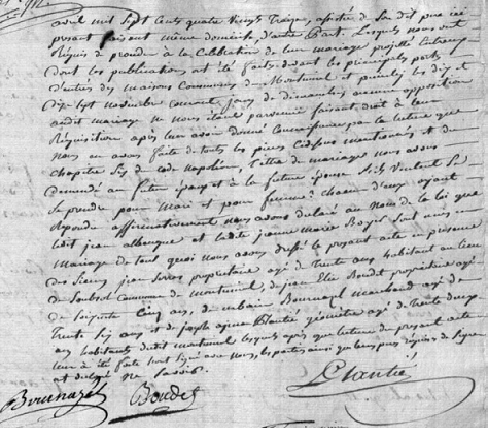 avril mil sept cents quatre vingts treize, assistée de son dit père ici
présent faisant même domicile d'autre Part. Lesquels nous ont
Requis de procéder à la Célébration de leur mariage projetté entreux
dont les publications ont été faites devant les principales portes
d'entrées des maisons Communes de Montmiral et les dix et
dix sept novembre courant jour de dimanche aucune opposition
audit mariage ne nous étant parvenue faisant droit à leur
Réquisition après leur avoir donné connaissance par la lecture que
nous en avons faite de toutes les pièces cidessus mentionnées et du
chapitre six du code Napoléon, Titre du mariage nous avons
demandé au futur époux et à la future épouse s'ils veulent se
prendre pour Mari et pour femme? chacun d'eux ayant
répondu affirmativement nous avons déclaré au nom de la loi que
ledit jean et ladite jeanne marie Boyer sont unis en
Mariage de tout quoi nous avons dressé le présent acte en présence
des Sieurs jean proprietaire agé de Trente ans habitant au lieu
de Commune de Montmiral, de jean Elie Boudet proprietaire agé
de soixante Cinq ans, de urbain Bournazel marchand agé de
Trente six ans et de joseph géomètre agé de Trente deux
ans habitants dudit montmiral lesquels après que lecture du présent acte
leur a été faite l'ont signé avec nous, les parties ainsi que leurs pères requis de signer
ont déclaré ne savoir.
Bournazel Boudet